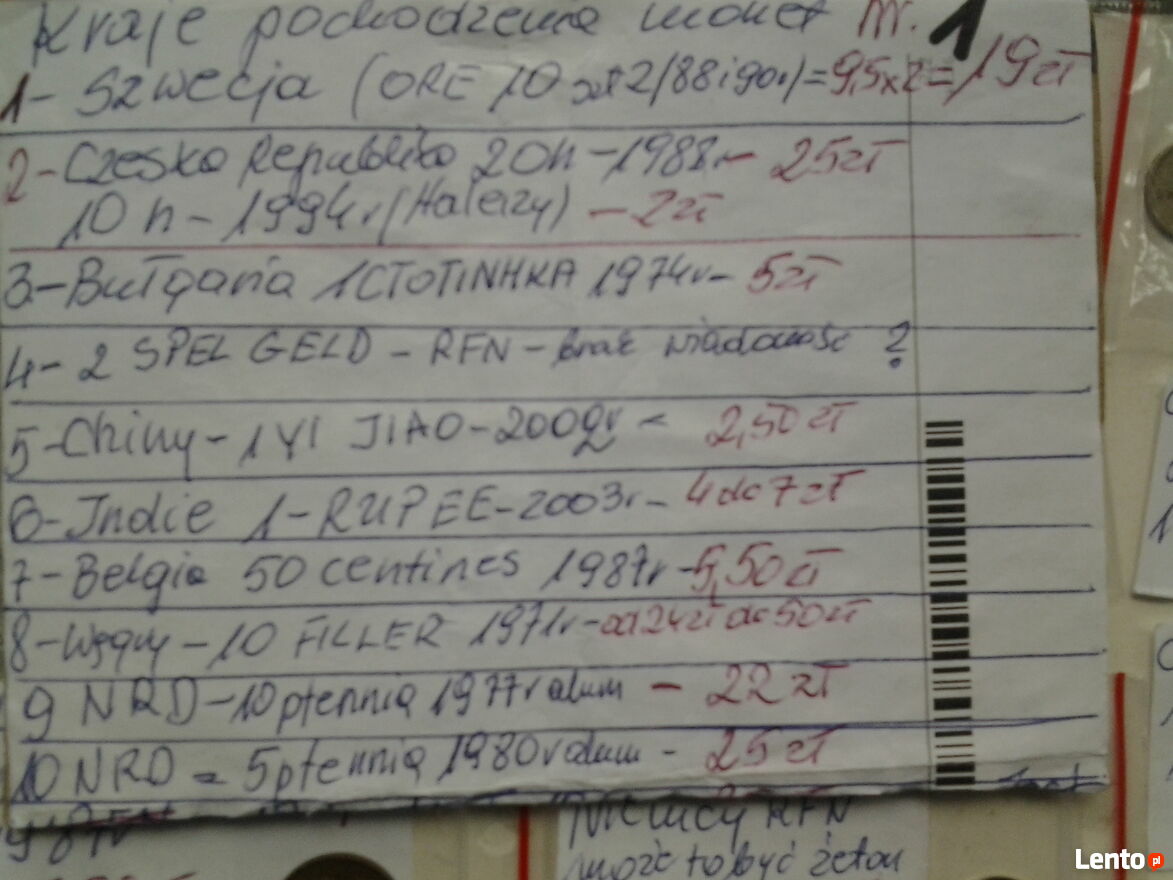 Kraje pochodzenia monet nr. 1
1- Szwecja (ORE 10 szt 2/88i90r)=9,5x2=19zł
2-Czesko Republiko 20h-1988r- 25zł
10h-1994r(Halerzy) -2zł
3-Bułgaria 1CTOTINHKA 1974r- 5zł
4-2 SPEL GELD - RFN - brak wiadomość ?
5-Chiny-1YI JIAO-2009r - 2,50zł
6-Indie 1-RUPEE-2003r- 4do7zł
7-Belgia 50 centines 1987r-5,50zł
8-Węgry-10 FILLER 1971r-od24zł do50zł
9 NRD-10pfennig 1977r alum - 22zł
10NRD = 5pfennig 1980r alum - 25zł
Niemcy RFN
może to być żeton
Lento.pl